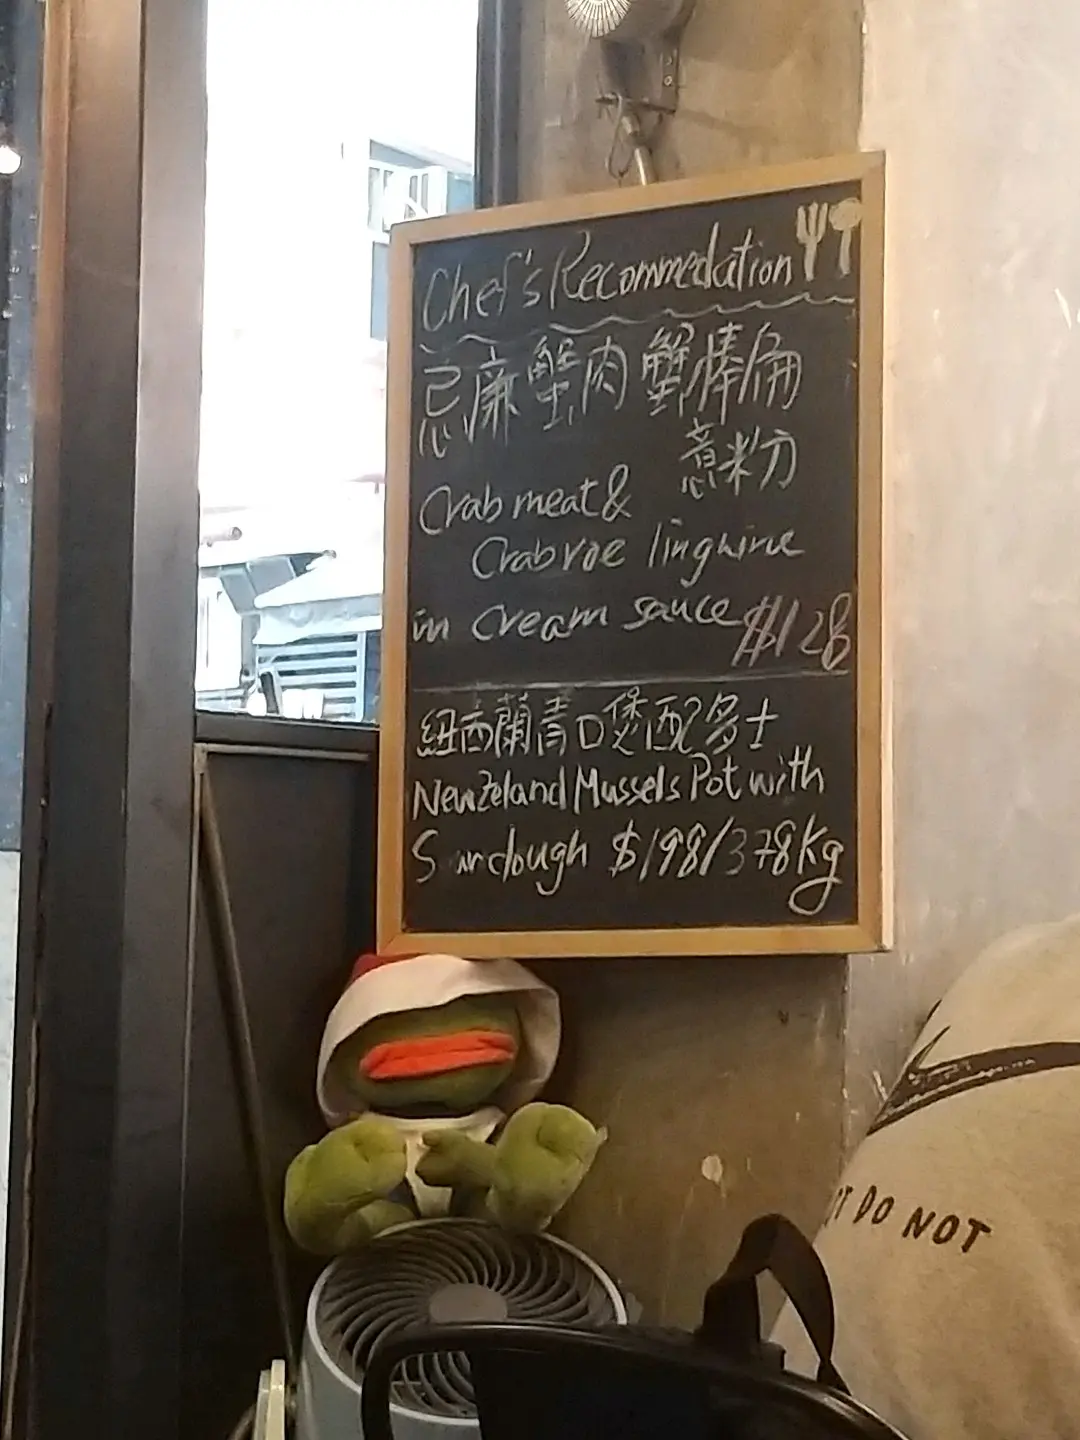 Chef's Recommedation
忌廉蟹肉蟹棒扁
意粉
Crab meat &
Crab roe linguine
in cream sauce $128
紐西蘭青口煲配多士
NewZeland Mussels Pot with
Sourdough $198/378kg
DO NOT